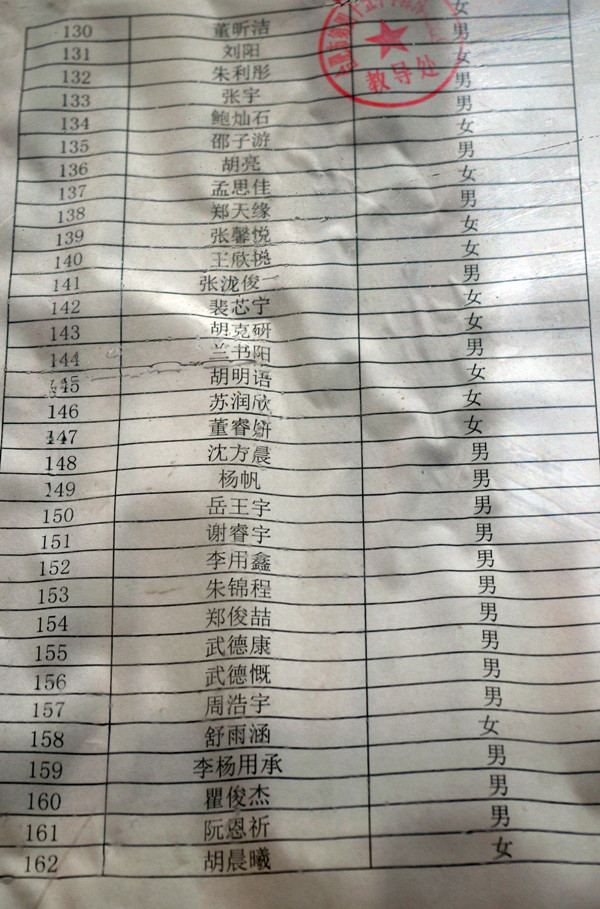 130 董昕洁 女
131 刘阳 男
132 朱利彤 女
133 张宇 男
134 鲍灿石 男
135 邵子游 女
136 胡亮 男
137 孟思佳 女
138 郑天缘 男
139 张馨悦 女
140 王欣悦 女
141 张泷俊一 男
142 裴芯宁 女
143 胡克研 女
144 兰书阳 男
145 胡明语 女
146 苏润欣 女
147 董睿妍 女
148 沈方晨 男
149 杨帆 男
150 岳王宇 男
151 谢睿宇 男
152 李用鑫 男
153 朱锦程 男
154 郑俊喆 男
155 武德康 男
156 武德慨 男
157 周浩宇 男
158 舒雨涵 女
159 李杨用承 男
160 瞿俊杰 男
161 阮恩祈 男
162 胡晨曦 女
教导处